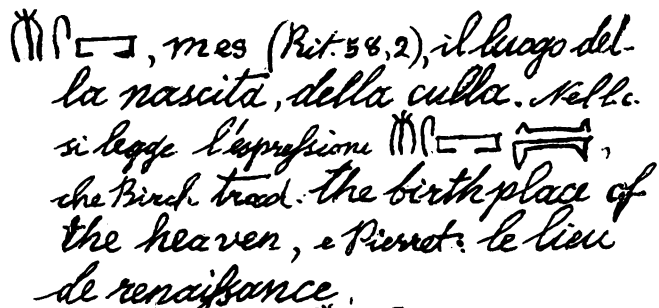 𓄟𓋴𓉐, mes (Rit. 58,2), il luogo del-
la nascita, della culla. Nel l.c.
si legge l'espreſsione 𓄟𓋴𓉐,
che Birch trad. the birthplace of
the heaven, e Pierret: le lieu
de renaiſsance.